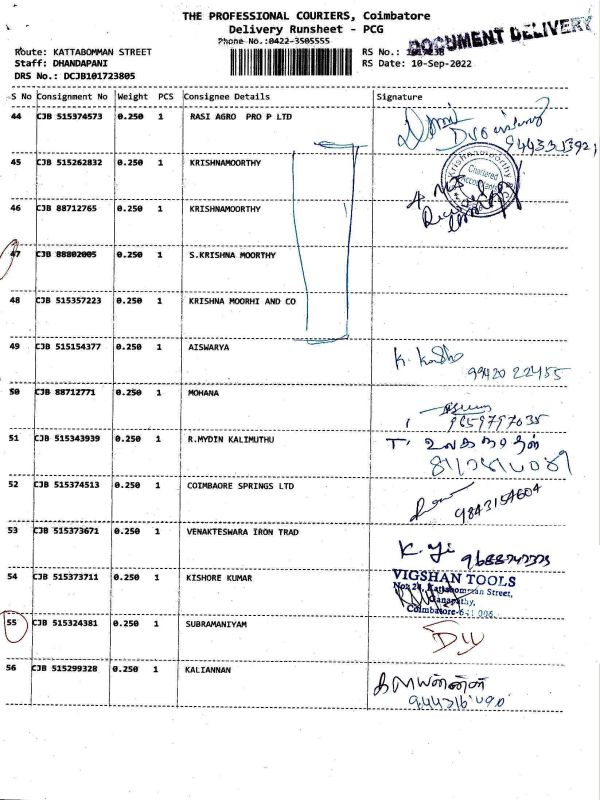 THE PROFESSIONAL COURIERS, Coimbatore
Delivery Runsheet - PCG
Phone No.:0422-3505555
DOCUMENT DELIVERY
Route: KATTABOMMAN STREET
RS No.:
Staff: DHANDAPANI
RS Date: 10-Sep-2022
DRS No.: DCJB101723805
S No Consignment No Weight PCS Consignee Details Signature
44 CJB 515374573 0.250 1 RASI AGRO PRO P LTD
45 CJB 515262832 0.250 1 KRISHNAMOORTHY
Krishnamoorthy
Chartered
Accountant
46 CJB 88712765 0.250 1 KRISHNAMOORTHY
47 CJB 88802005 0.250 1 S.KRISHNA MOORTHY
48 CJB 515357223 0.250 1 KRISHNA MOORHI AND CO
49 CJB 515154377 0.250 1 AISWARYA
99420 22455
50 CJB 88712771 0.250 1 MOHANA
9659797035
51 CJB 515343939 0.250 1 R.MYDIN KALIMUTHU
T. உலகநாதன்
52 CJB 515374513 0.250 1 COIMBAORE SPRINGS LTD
9843154604
53 CJB 515373671 0.250 1 VENAKTESWARA IRON TRAD
54 CJB 515373711 0.250 1 KISHORE KUMAR
VIGSHAN TOOLS
No: 24, Kattabomman Street,
Ganapathy,
Coimbatore-641 006.
55 CJB 515324381 0.250 1 SUBRAMANIYAM
56 CJB 515299328 0.250 1 KALIANNAN